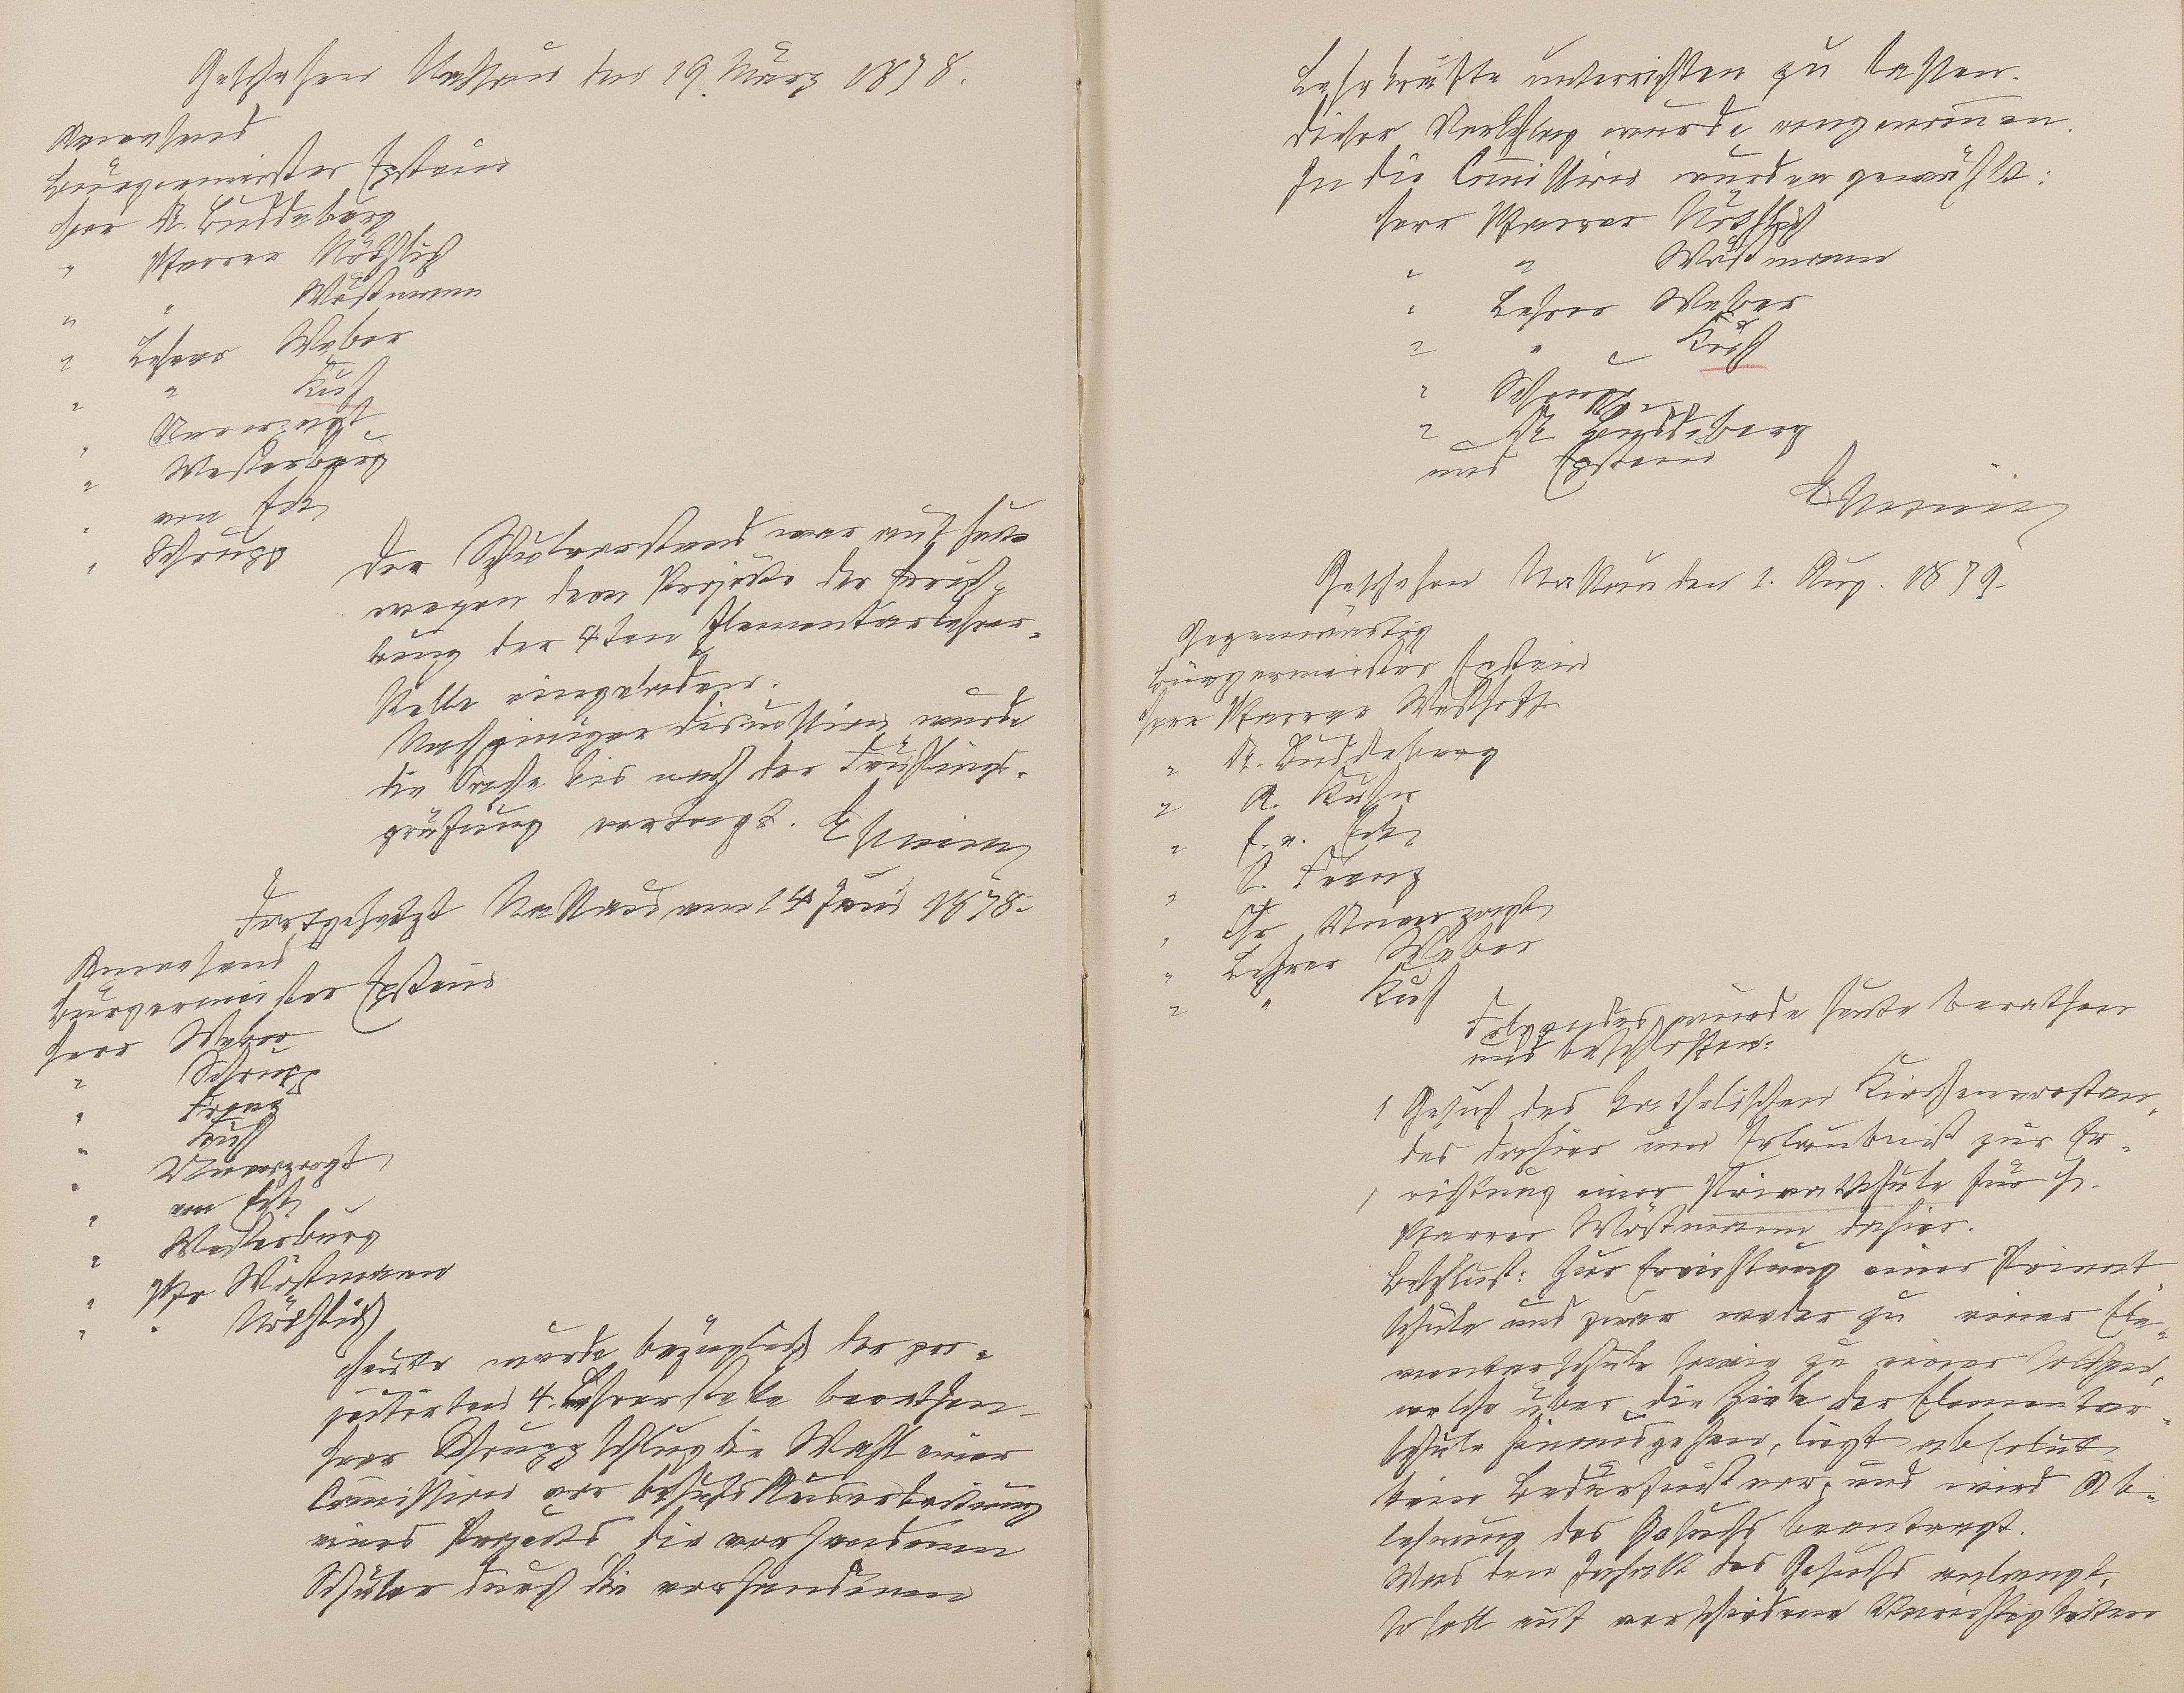 Geschehen Nassau den 19. März 1878.
Anwesend
Bürgermeister Epstein
Herr Dr. Buddeberg
" Pfarrer Nöthlich
" " Wöstmann
" Lehrer Weber
" " Kuch
" Unverzagt
" Westerburg
" von Eck
" Schrupp
Der Schulvorstand war auf heute
wegen dem Projecte der Errich-
tung der 4ten Elementarlehrer-
stelle eingeladen.
Nach einiger Discussion wurde
die Sache bis nach der Frühjahrs-
prüfung vertagt.
Fortgesetzt Nassau am 14 Juni 1878.
Anwesend
Bürgermeister Epstein
Herr Weber
" Schrupp
" Franz
" Kuch
" Unverzagt
" von Eck
" Westerburg
" Pfr Wöstmann
" " Nöthlich
Heute wurde bezüglich der pro-
jectirten 4. Lehrerstelle berathen.
Herr Schrupp schlug die Wahl einer
Commission vor behufs Ausarbeitung
eines Projects die vorhandenen
Schüler durch die vorhandenen
Lehrkräfte unterrichten zu lassen.
Dieser Vorschlag wurde angenommen.
In die Commission wurden gewählt:
Herr Pfarrer Nöthlich
" " Wöstmann
" Lehrer Weber
" " Kuch
" Schrupp
" Dr. Buddeberg
und Epstein
Geschehen Nassau den 1. Aug. 1879.
Gegenwärtig
Bürgermeister Epstein
Herr Pfarrer Westhoff
" Dr. Buddeberg
" A. Kuhn
" E. v. Eck
" C. Franz
" Chr Unverzagt
" Lehrer Weber
" " Kuch
Folgendes wurde heute berathen
und beschlossen:
1 Gesuch des katholischen Kirchenvorstan-
des dahier um Erlaubniß zur Er-
richtung einer Privatschule für H.
Pfarrer Wöstmann dahier.
Beschluß: Zur Errichtung einer Privat-
schule und zwar weder zu einer Ele-
mentarschule sowie zu einer solchen,
welche über die Ziele der Elementar-
schule hinausgehen, liegt absolut
kein Bedürfniß vor, und wird Ab-
lehnung des Gesuchs beantragt.
Was den Inhalt des Gesuchs anlangt,
so soll auf verschiedene Unrichtigkeiten